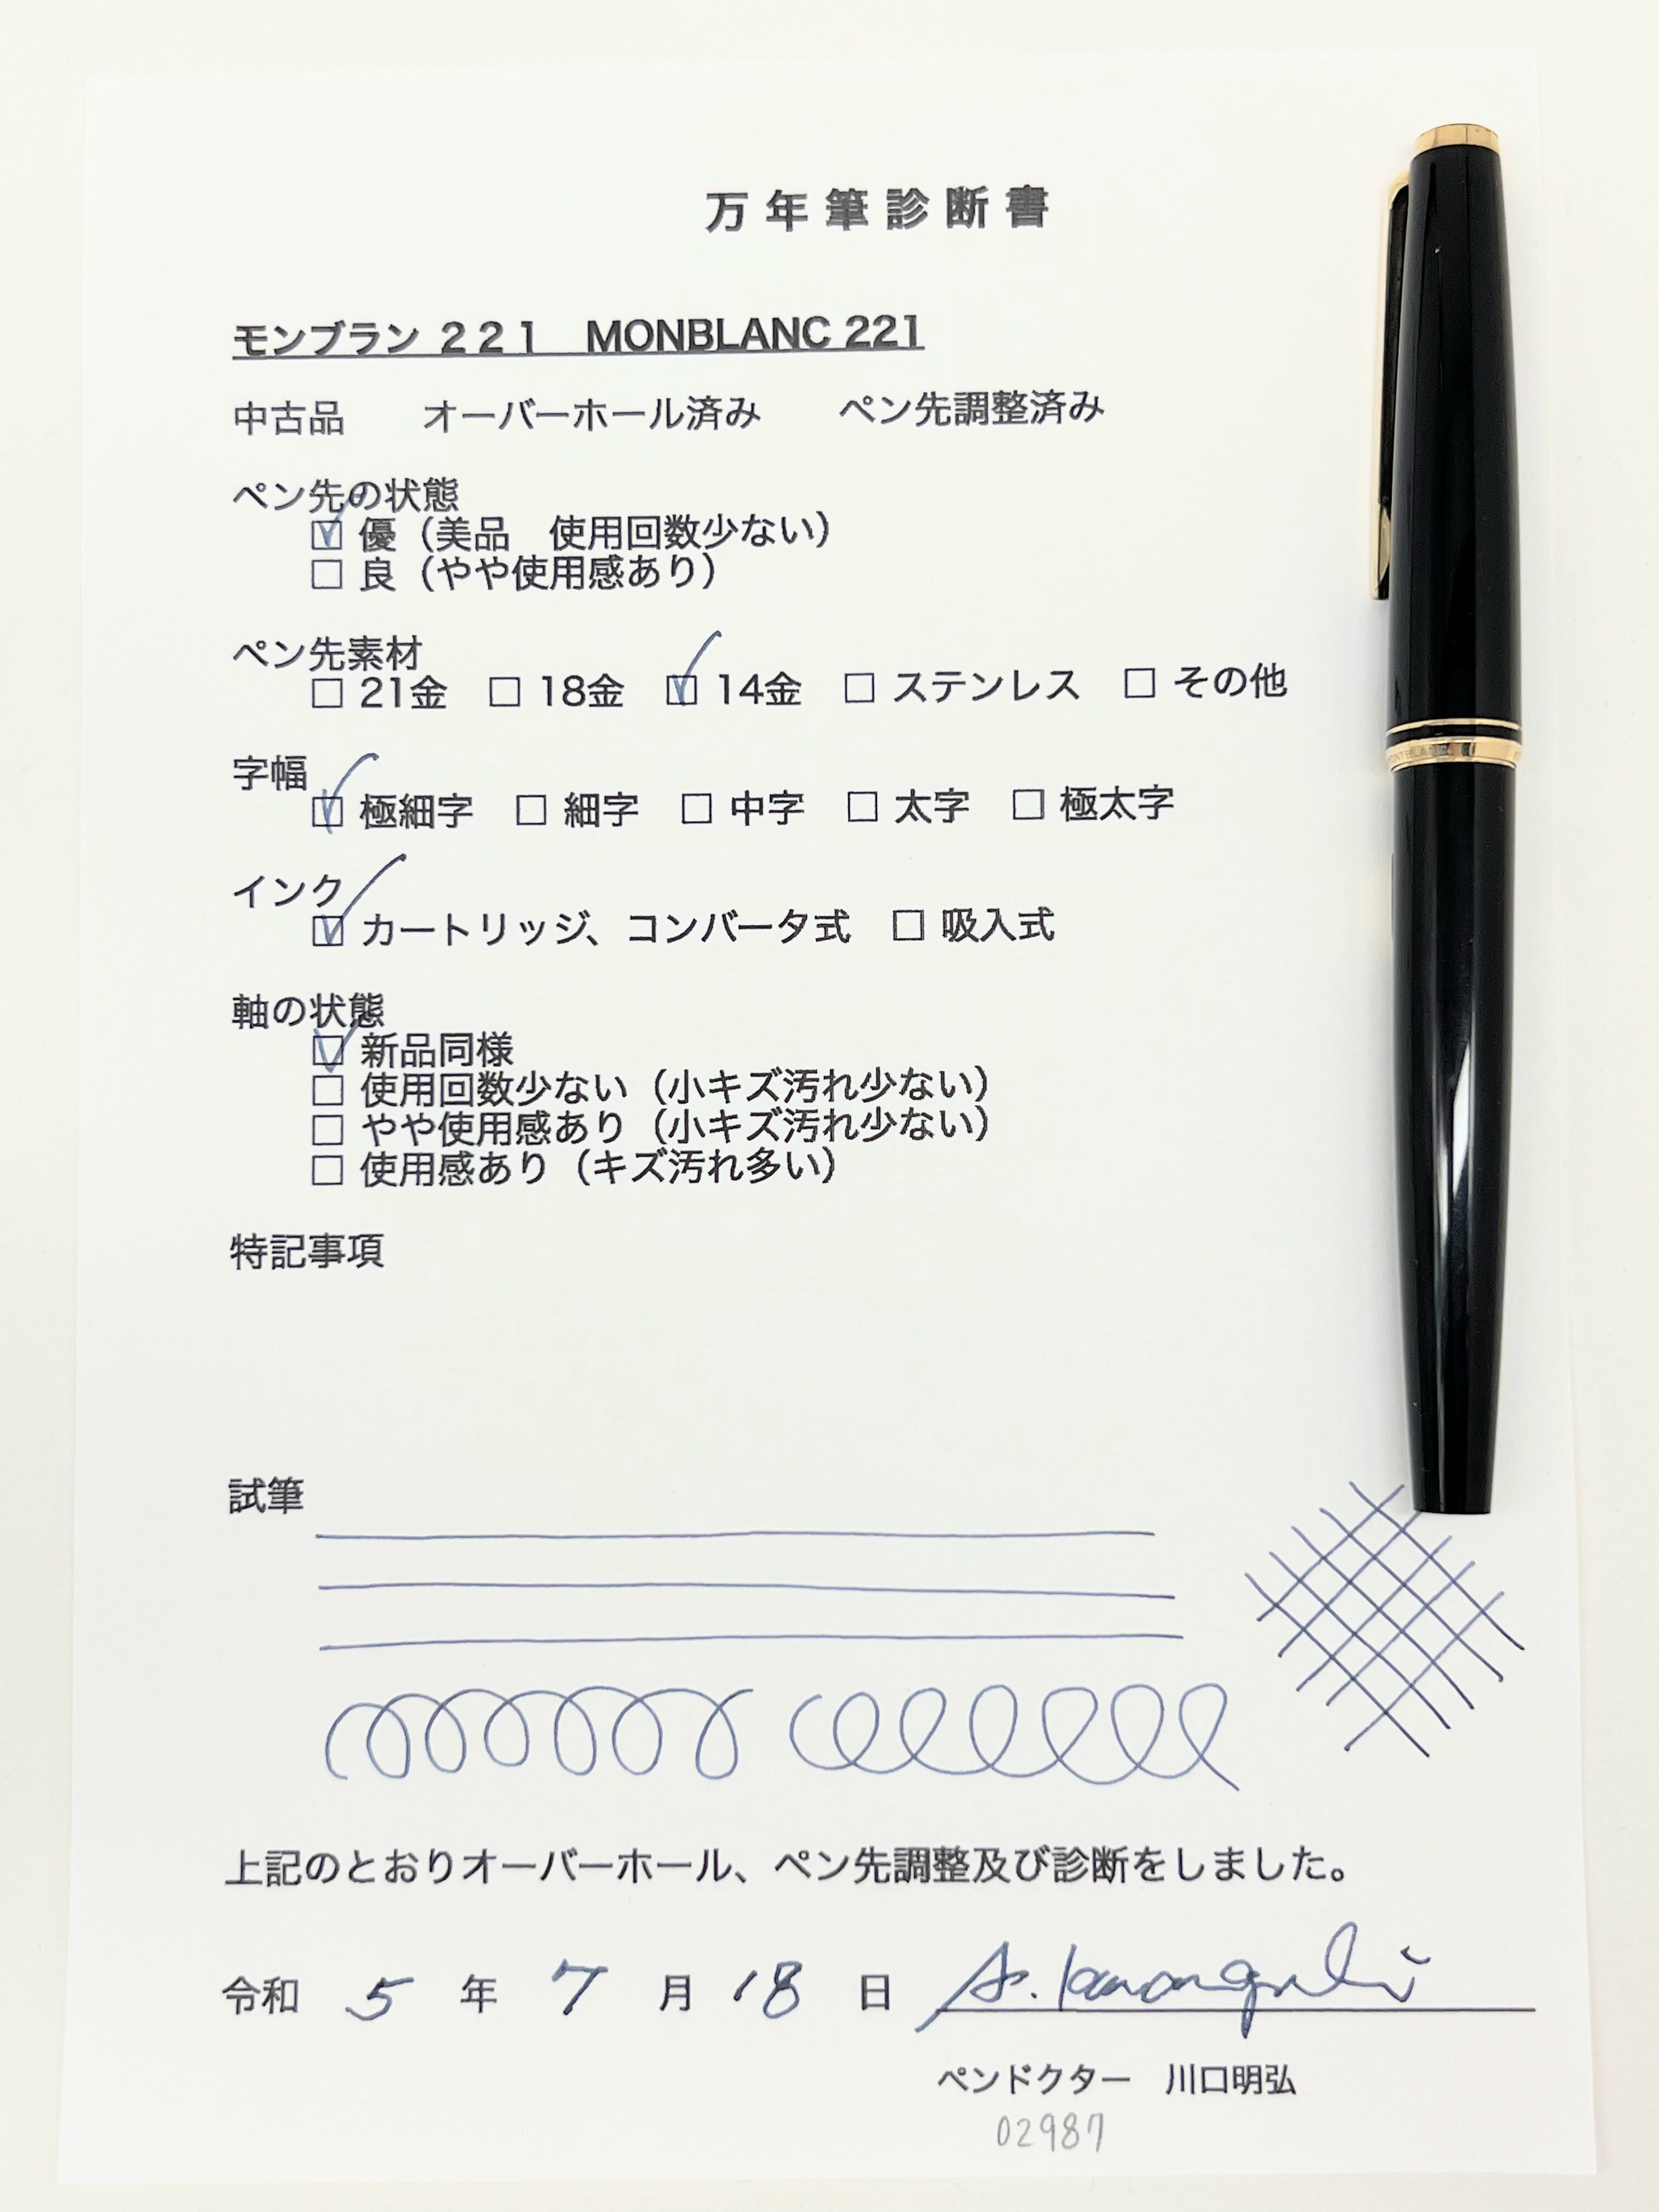 万年筆診断書
モンブラン ２２１　MONBLANC 221
中古品　　オーバーホール済み　　ペン先調整済み
ペン先の状態
☑ 優（美品　使用回数少ない）
☐ 良（やや使用感あり）
ペン先素材
☐ 21金　☐ 18金　☑ 14金　☐ ステンレス　☐ その他
字幅
☑ 極細字　☐ 細字　☐ 中字　☐ 太字　☐ 極太字
インク
☑ カートリッジ、コンバータ式　☐ 吸入式
軸の状態
☑ 新品同様
☐ 使用回数少ない（小キズ汚れ少ない）
☐ やや使用感あり（小キズ汚れ少ない）
☐ 使用感あり（キズ汚れ多い）
特記事項
試筆
上記のとおりオーバーホール、ペン先調整及び診断をしました。
令和 5 年 7 月 18 日 A. Kawaguchi
ペンドクター　川口明弘
02987